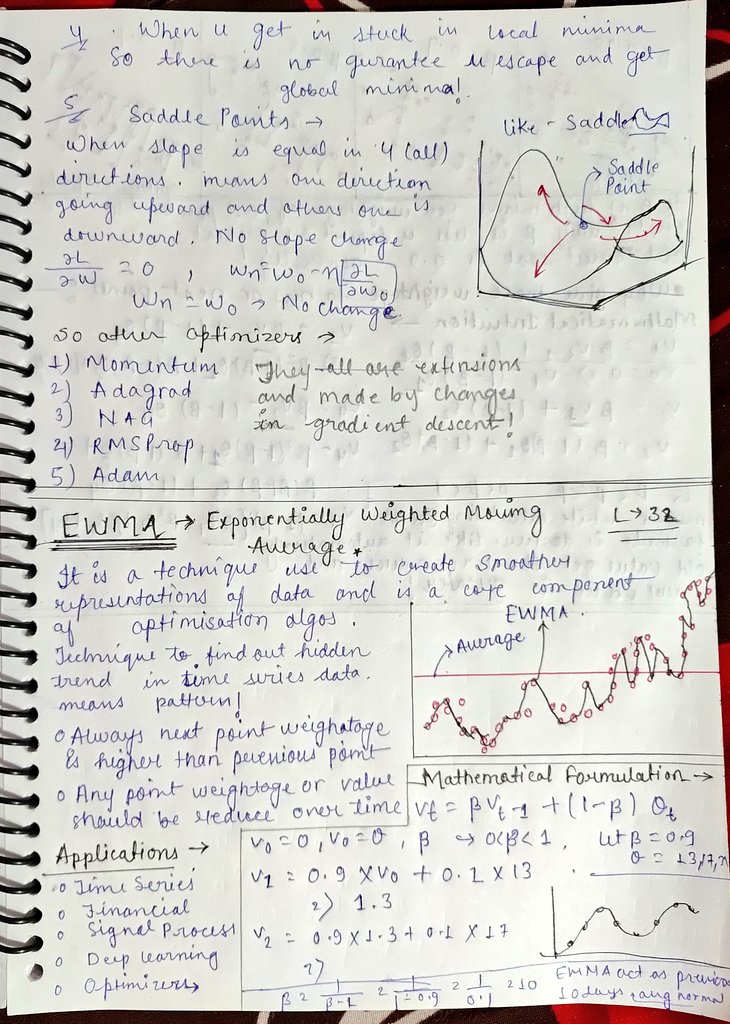 4 . When u get in stuck in local minima
So there is no gurantee u escape and get
global minima!
5 Saddle Points →
like - Saddle
When slape is equal in 4 (all)
directions. means one direction
going upward and others one is
downward. No slope change
Saddle
Point
∂L/∂W = 0 , Wn = Wo - η ∂L/∂Wo
Wn = Wo → No change
So other optimizers →
1) Momentum
2) Adagrad
3) NAG
4) RMSProp
5) Adam
They all are extensions
and made by changes
in gradient descent!
EWMA → Exponentially Weighted Moving
Average*
L → 32
It is a technique use to create smoother
representations of data and is a core component
of optimisation algos.
Technique to find out hidden
trend in time series data.
means pattern!
EWMA
Average
o Always next point weightage
is higher than pervious point
o Any point weightage or value
should be reduce over time
Mathematical Formulation →
Vt = βVt-1 + (1-β) Θt
V0 = 0, V0 = Θ, β → 0<β<1, let β = 0.9
Θ = 13,17,
V1 = 0.9 X V0 + 0.1 X 13
⇒ 1.3
V2 = 0.9 X 1.3 + 0.1 X 17
Applications →
o Time Series
o Financial
o Signal Process
o Deep learning
o Optimizers
β = 1/β-1 = 1/1-0.9 = 1/0.1 = 10
EWMA act as previou
10 days avg normal